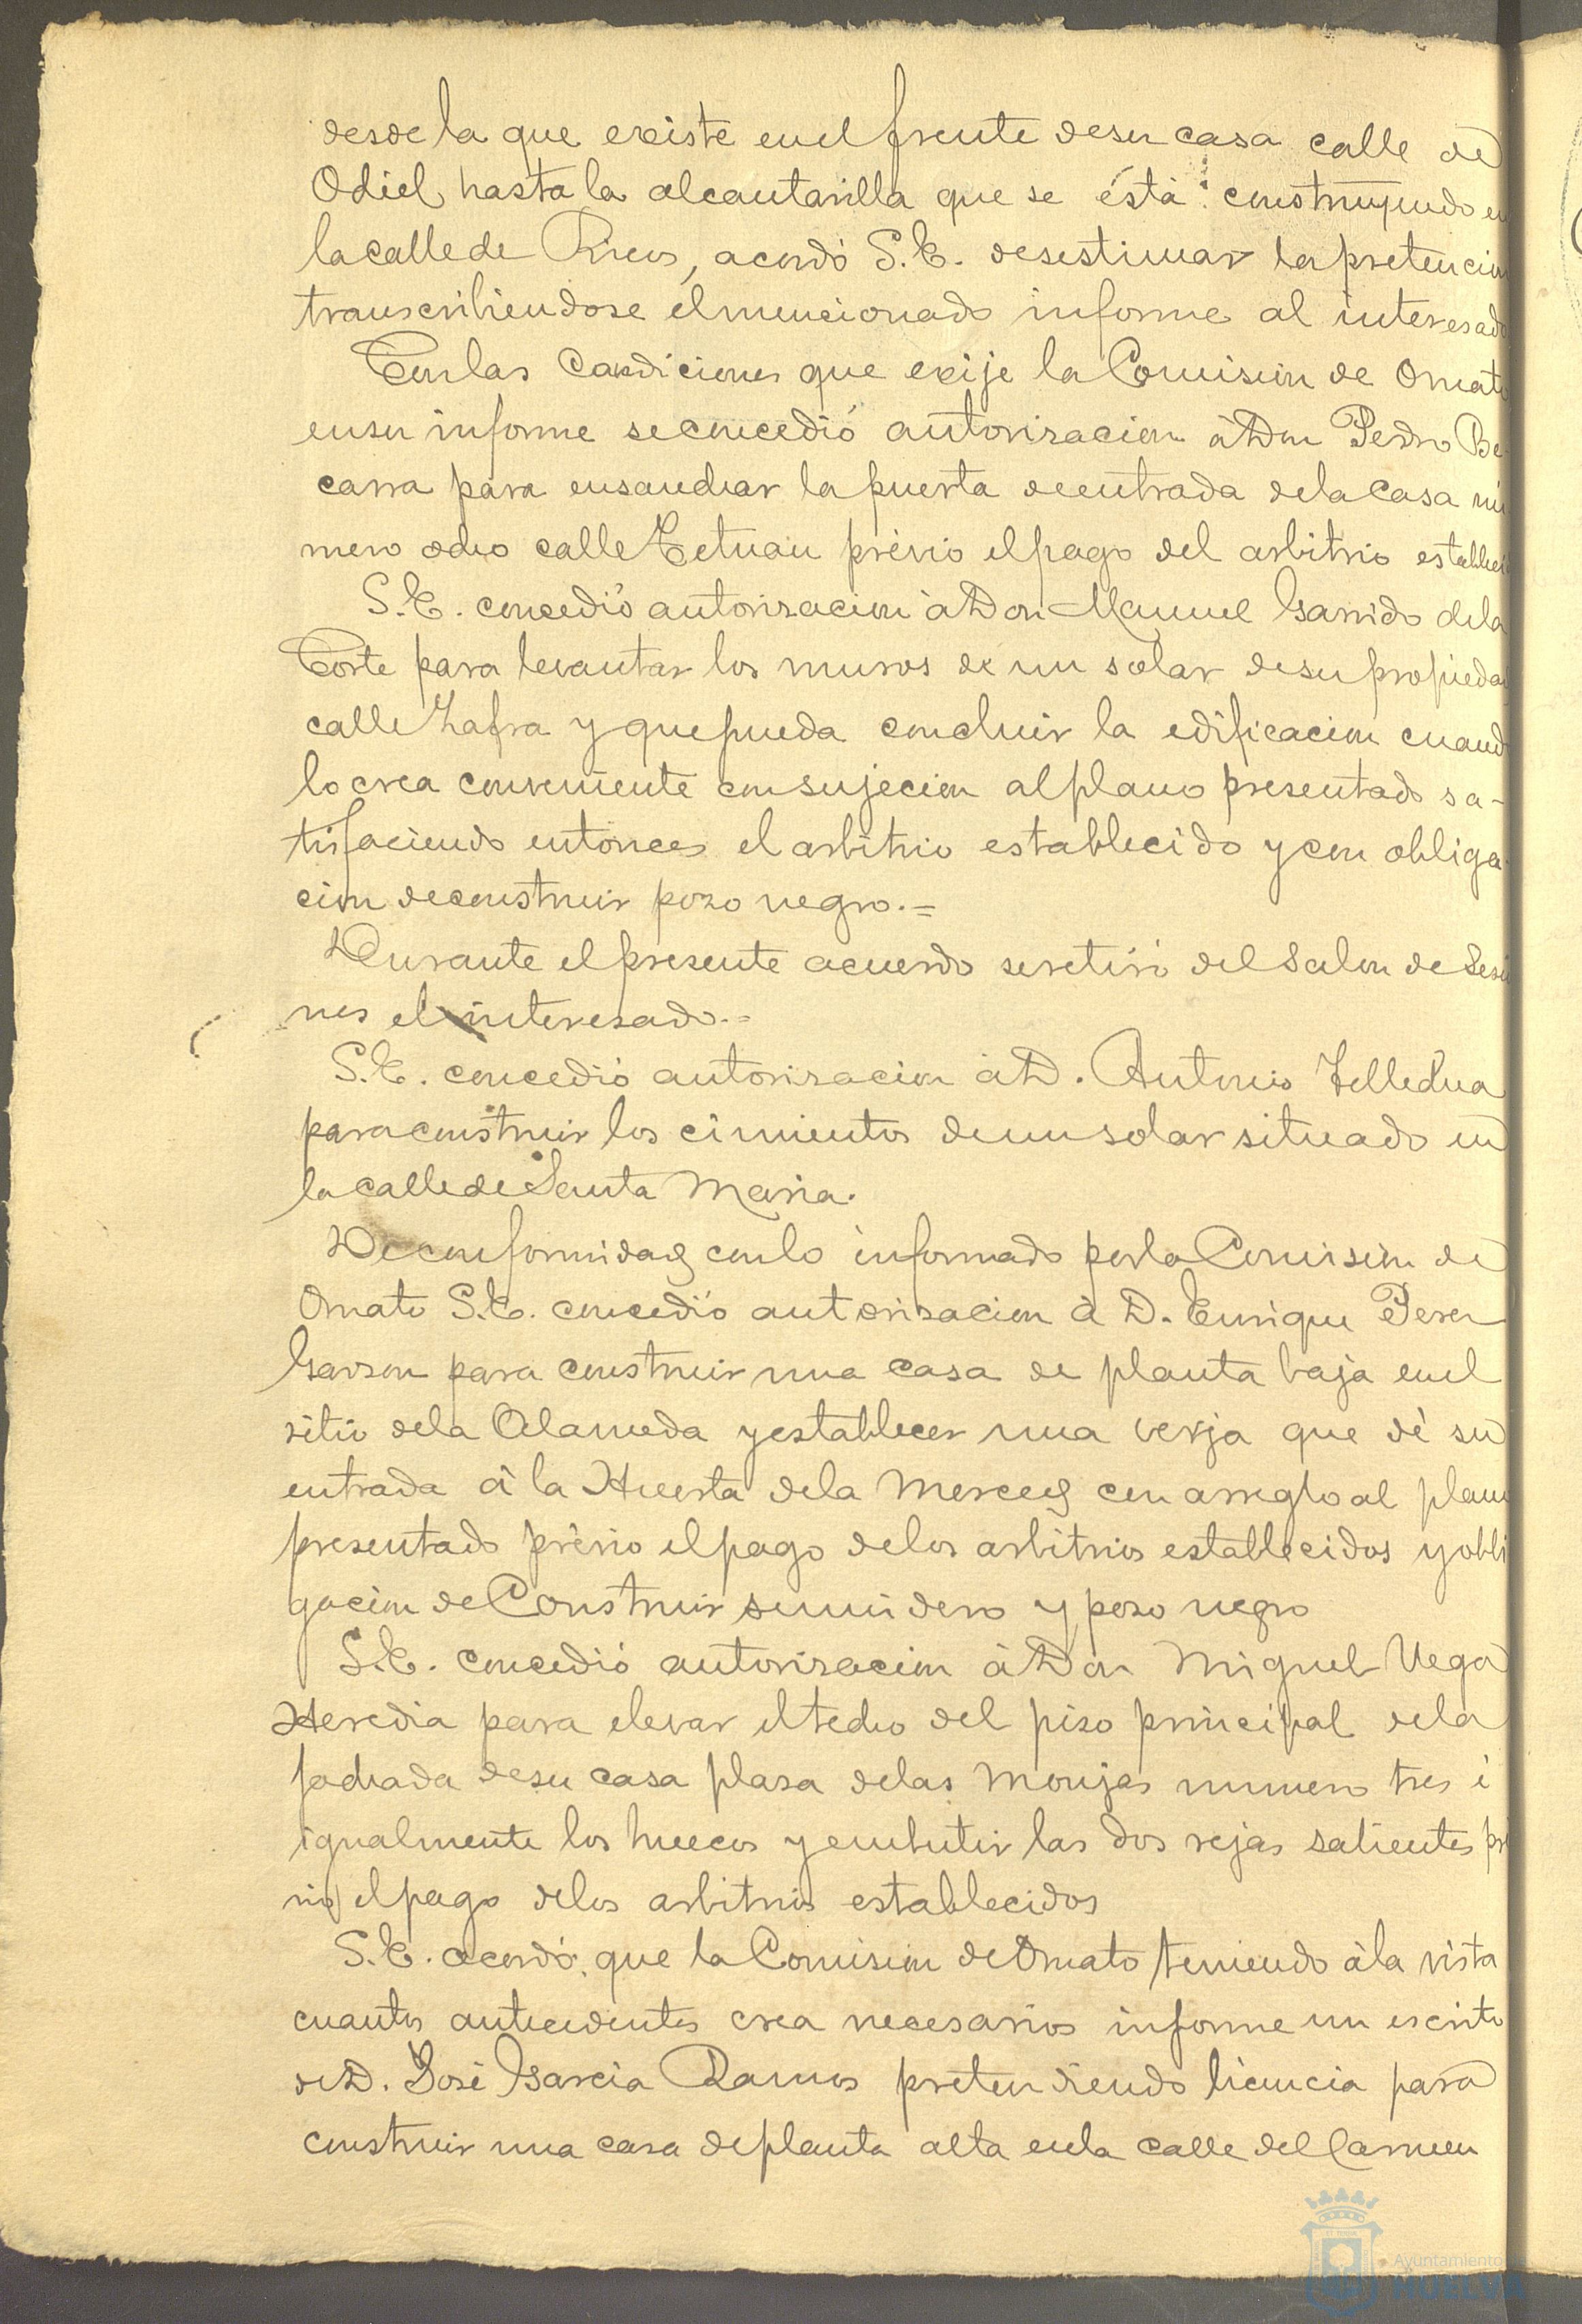 desde la que existe en el frente de su casa calle de
Odiel hasta la alcantarilla que se está construyendo en
la calle de Ricos, acordó S.E. desestimar la pretencion
transcribiendose el mencionado informe al interesado
Con las condiciones que exije la Comision de Ornato
en su informe se concedió autorizacion á Don Pedro Be-
carra para ensanchar la puerta de entrada de la casa nú
mero ocho calle Tetuan prévio el pago del arbitrio estableci
S.E. concedió autorizacion á Don Manuel Garrido de la
Corte para levantar los muros de un solar de su propiedad
calle Zafra y que pueda concluir la edificacion cuand
lo crea conveniente con sujecion al plano presentado sa-
tisfaciendo entonces el arbitrio establecido y con obliga-
cion de construir pozo negro.=
Durante el presente acuerdo se retiró del Salon de Sesio
nes el interesado.=
S.E. concedió autorizacion á D. Antonio
para construir los cimientos de un solar situado en
la calle de Santa Maria.
De conformidad con lo informado por la Comision de
Ornato S.E. concedió autorizacion á D. Enrique Perez
Garzon para construir una casa de planta baja en el
sitio de la Alameda y establecer una verja que dé su
entrada á la Huerta de la Merced con arreglo al plano
presentado prévio el pago de los arbitrios establecidos y obli
gacion de Construir sumidero y pozo negro
S.E. concedió autorizacion á Don Miguel Vega
Heredia para elevar el techo del piso principal de la
fachada de su casa plaza de las Monjas numero tres é
igualmente los huecos y embutir las dos rejas salientes pré
vio el pago de los arbitrios establecidos
S.E. acordó, que la Comision de Ornato teniendo á la vista
cuantos antecedentes crea necesarios informe un escrito
de D. José Garcia Ramos pretendiendo licencia para
construir una casa de planta alta en la calle del Carmen
Ayuntamiento de
HUELVA